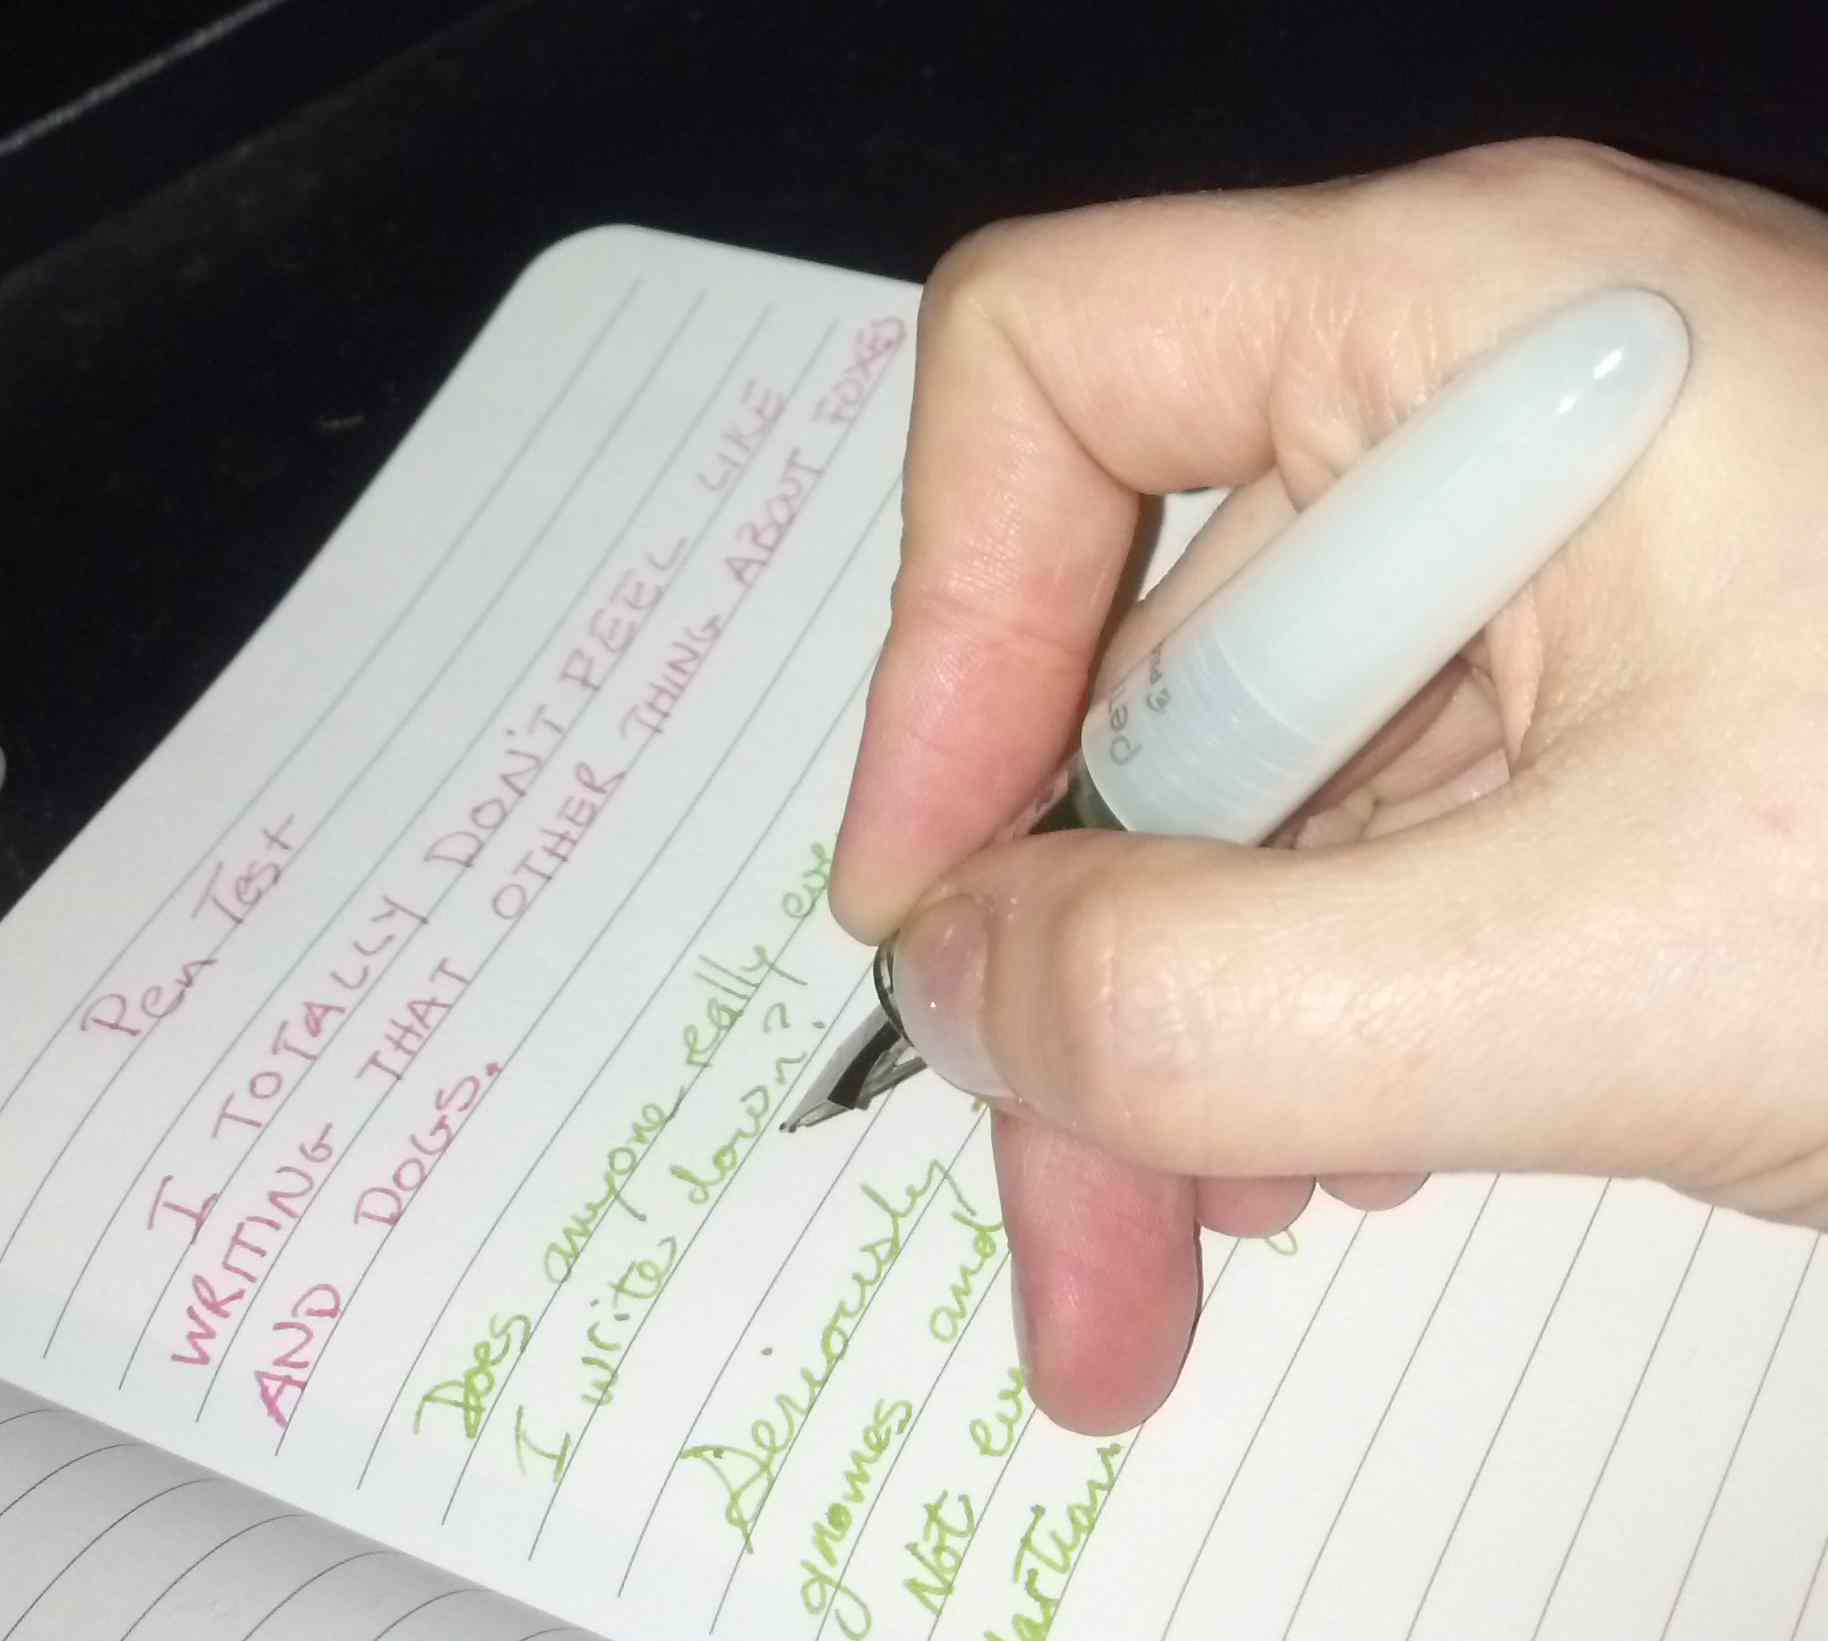 Pen Test
I TOTALLY DON'T FEEL LIKE
WRITING THAT OTHER THING ABOUT FOXES
AND DOGS.
Does anyone really
I write down?
Seriously
gnomes and
Not